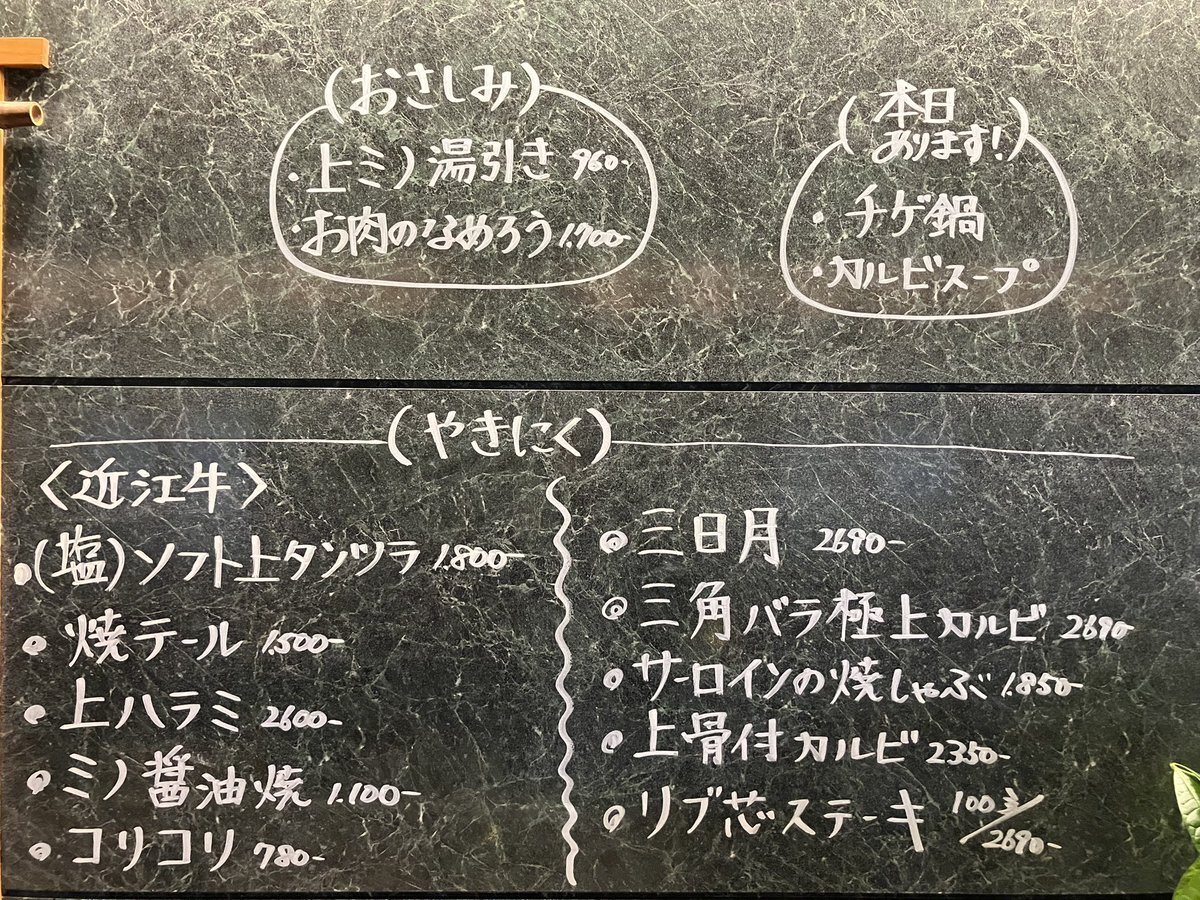 (おさしみ)
・上ミノ湯引き 960-
・お肉のなめろう 1.700-
(本日
あります!)
・チゲ鍋
・カルビスープ
(やきにく)
〈近江牛〉
・(塩)ソフト上タンツラ 1.800-
・焼テール 1.500-
・上ハラミ 2600-
・ミノ醤油焼 1.100-
・コリコリ 780-
・三日月 2690-
・三角バラ極上カルビ 2690-
・サーロインの焼しゃぶ 1.850-
・上骨付カルビ 2350-
・リブ芯ステーキ 100g/2690-